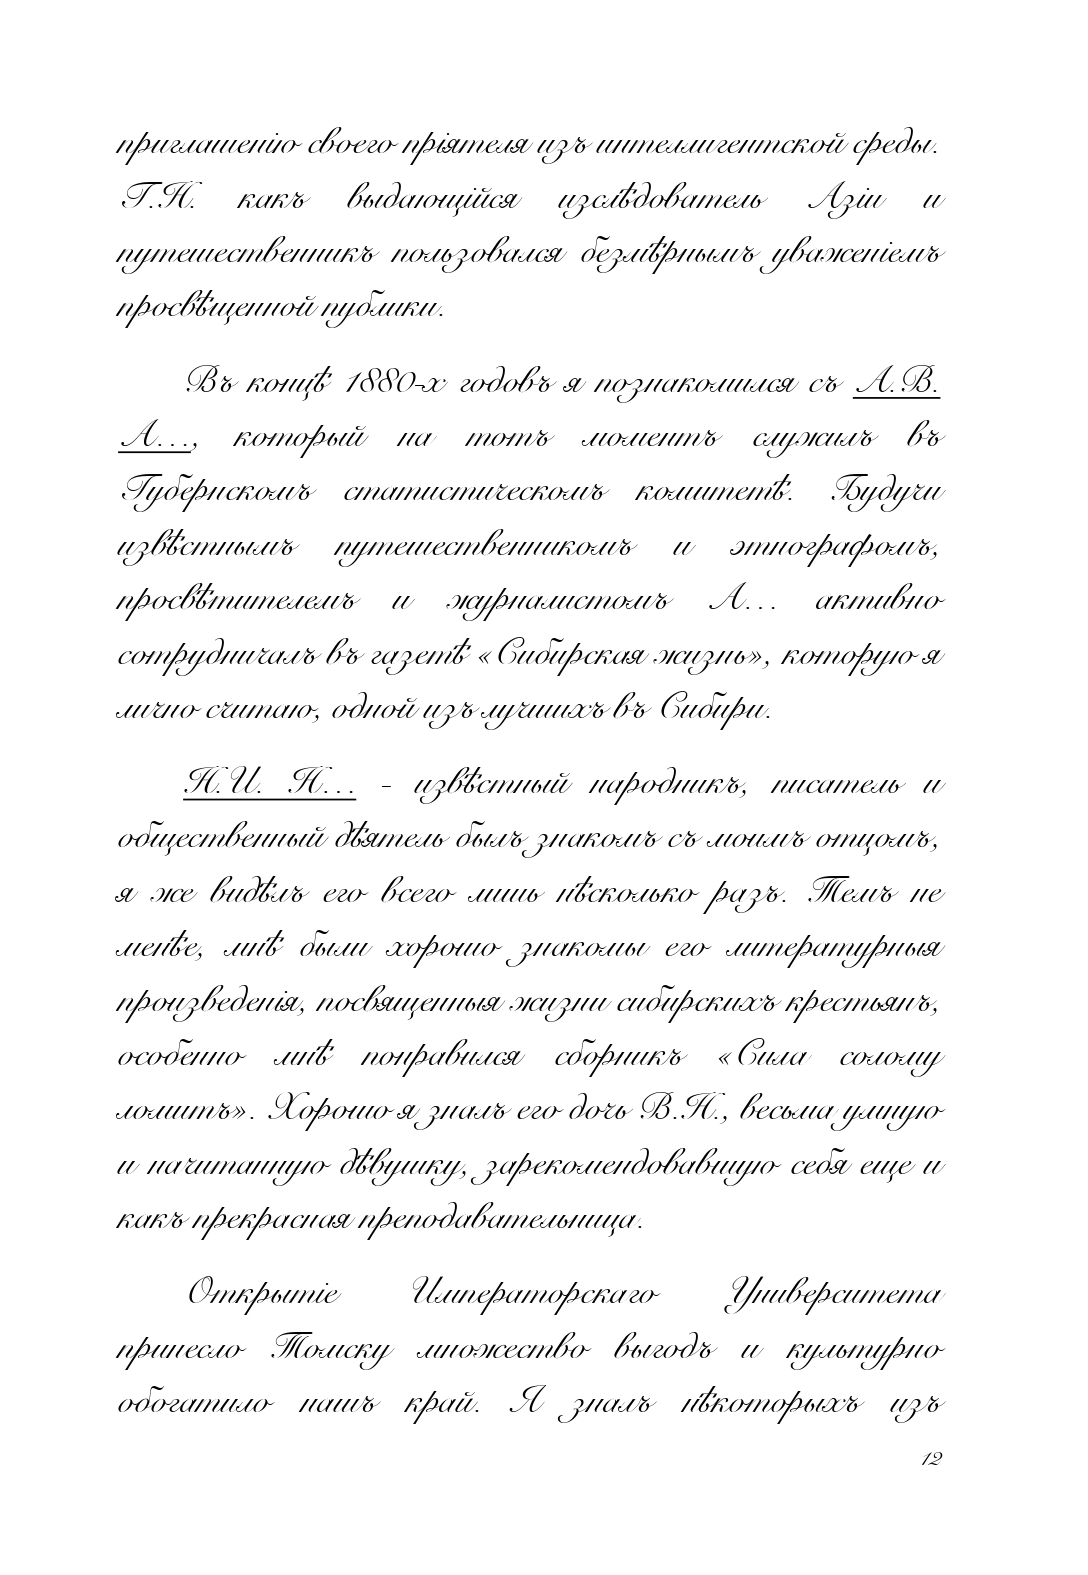 приглашенію своего пріятеля изъ интеллигентской среды.
Г.Н. какъ выдающійся изслѣдователь Азіи и
путешественникъ пользовался безмѣрнымъ уваженіемъ
просвѣщенной публики.
Въ концѣ 1880-х годовъ я познакомился съ А.В.
А…, который на тотъ моментъ служилъ въ
Губернскомъ статистическомъ комитетѣ. Будучи
извѣстнымъ путешественникомъ и этнографомъ,
просвѣтителемъ и журналистомъ А… активно
сотрудничалъ въ газетѣ «Сибирская жизнь», которую я
лично считаю, одной изъ лучшихъ въ Сибири.
Н.И. Н… - извѣстный народникъ, писатель и
общественный дѣятель былъ знакомъ съ моимъ отцомъ,
я же видѣлъ его всего лишь нѣсколько разъ. Темъ не
менѣе, мнѣ были хорошо знакомы его литературныя
произведенія, посвященныя жизни сибирскихъ крестьянъ,
особенно мнѣ понравился сборникъ «Сила солому
ломитъ». Хорошо я зналъ его дочь В.Н., весьма умную
и начитанную дѣвушку, зарекомендовавшую себя еще и
какъ прекрасная преподавательница.
Открытіе Императорскаго Университета
принесло Томску множество выгодъ и культурно
обогатило нашъ край. Я зналъ нѣкоторыхъ изъ
12